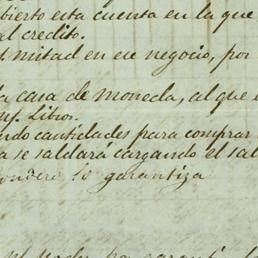 bierto esta cuenta en la que
al credito.
mitad en ese negocio, por
la casa de moneda, al que
Libros.
ndo cantidades para comprar
a se saldará cargando el sal
se garantiza